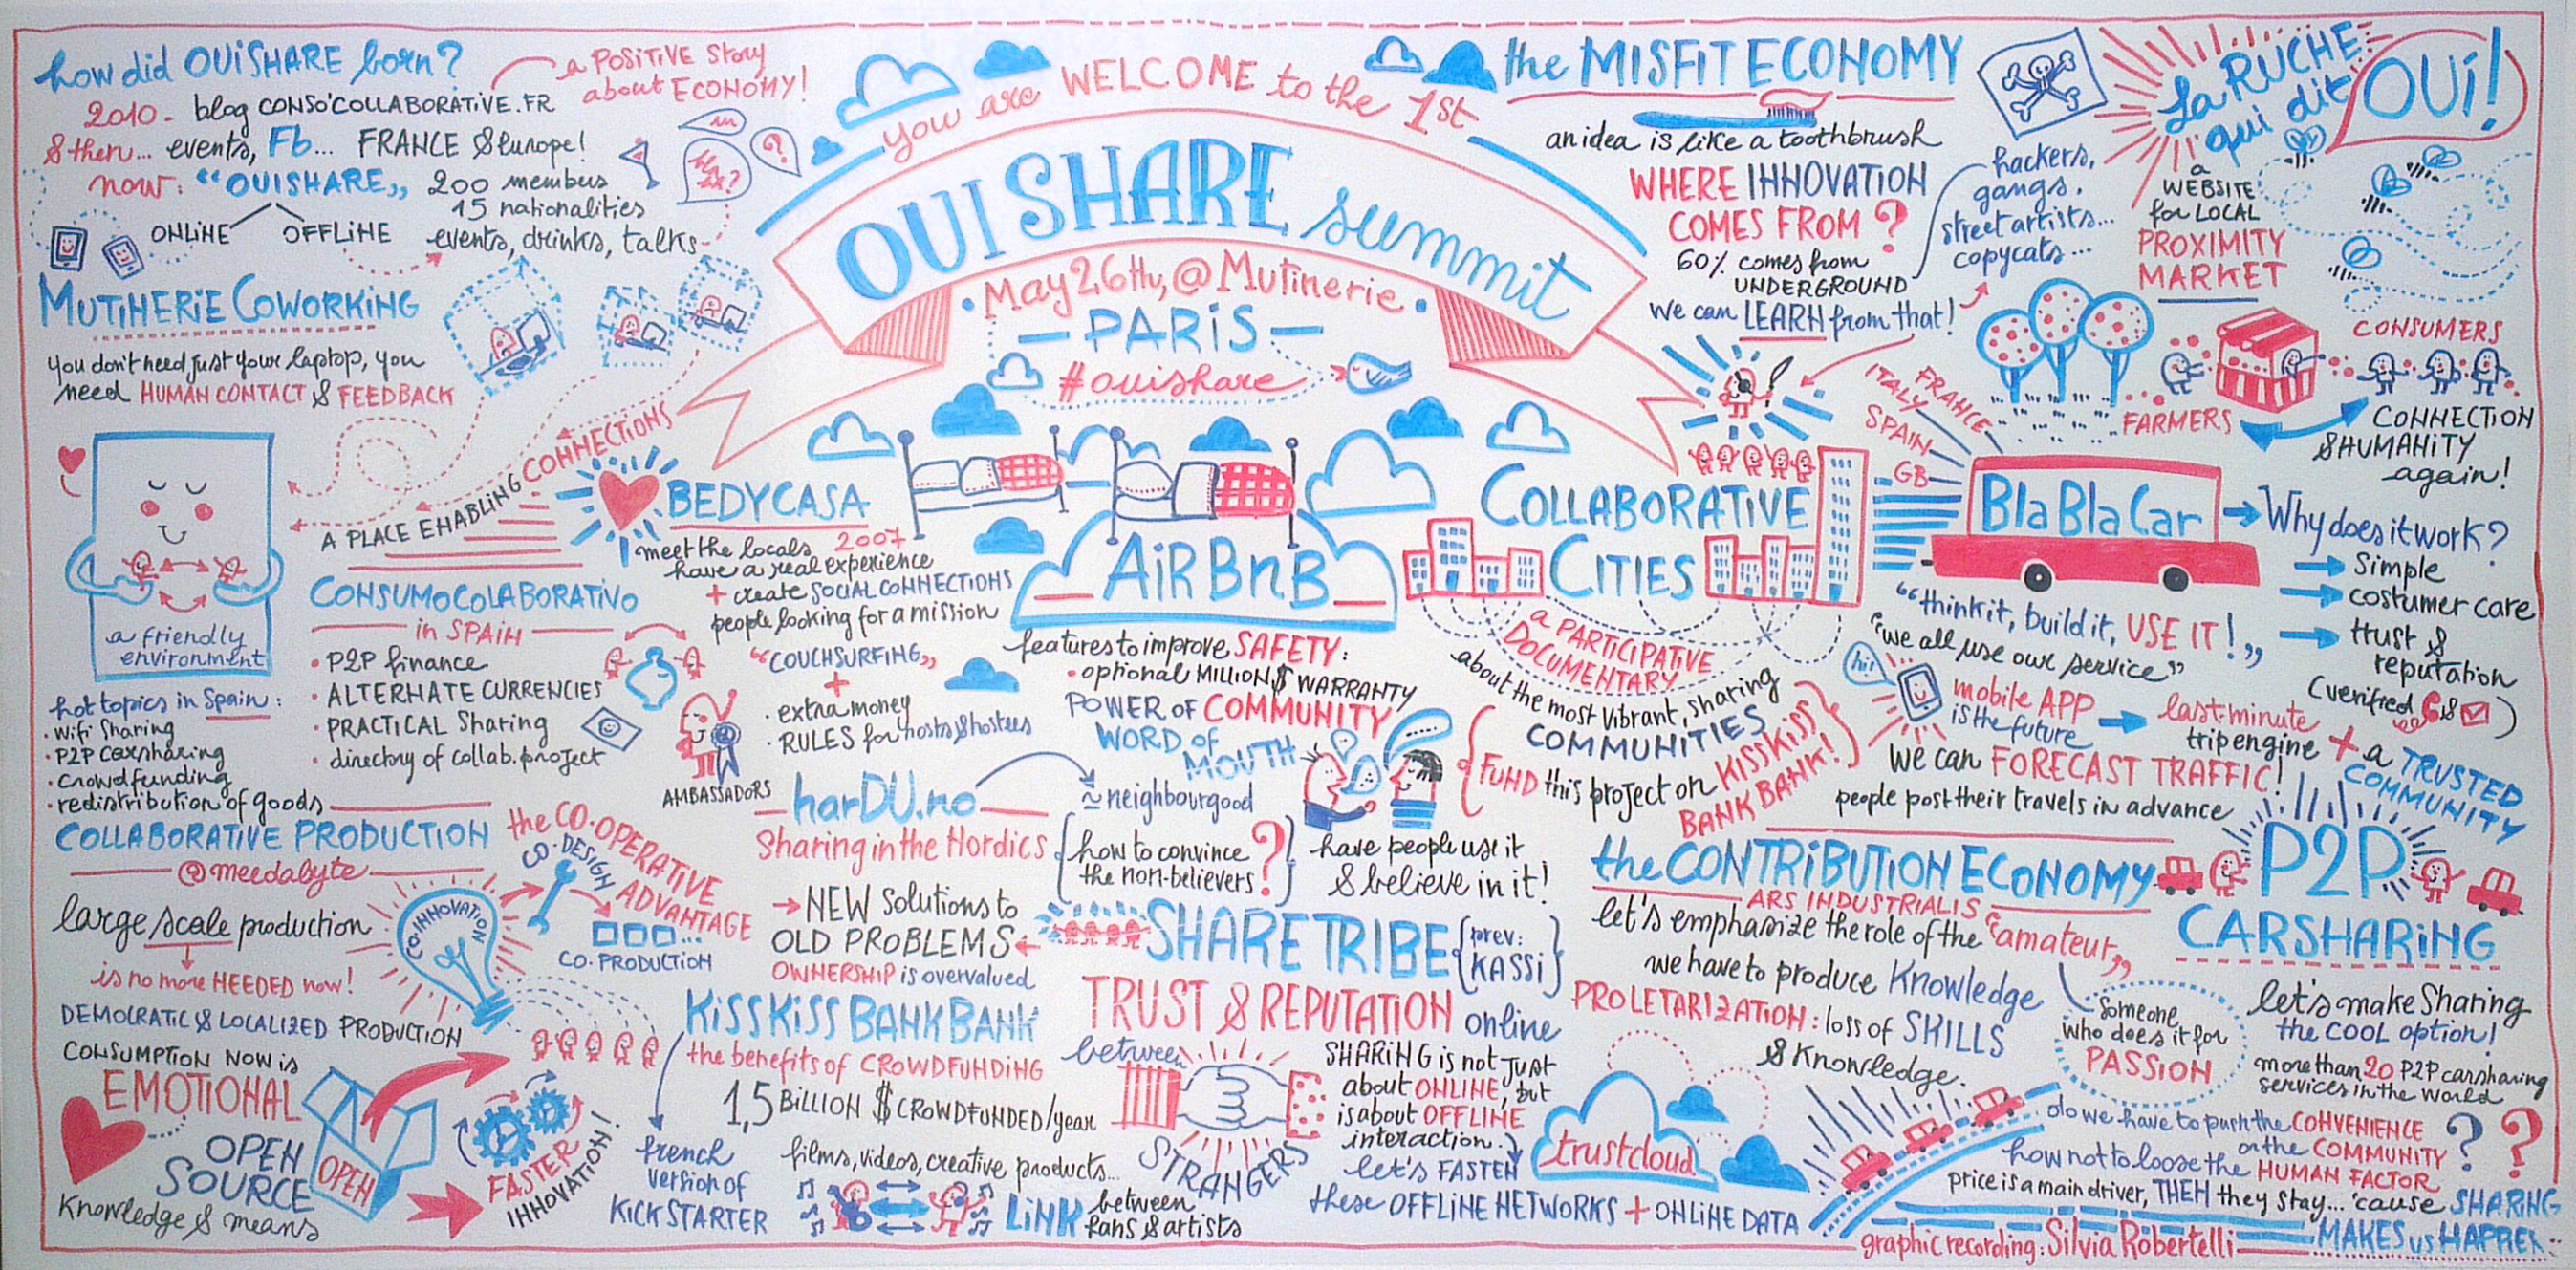 how did OUISHARE born?
a POSITIVE Story
about ECONOMY!
2010 - blog CONSO'COLLABORATIVE.FR
& then... events, Fb... FRANCE & Europe!
now: "OUISHARE„ 200 members
15 nationalities
ONLINE OFFLINE
events, drinks, talks
?
MUTINERIE COWORKING
you don't need just your laptop, you
need HUMAN CONTACT & FEEDBACK
A PLACE ENABLING CONNECTIONS
a friendly
environment
you are WELCOME to the 1st
OUISHARE summit
May 26th, @ Mutinerie
- PARIS -
#ouishare
the MISFIT ECONOMY
an idea is like a toothbrush
WHERE INNOVATION
COMES FROM?
60% comes from
UNDERGROUND
we can LEARN from that!
hackers,
gangs,
street artists...
copycats...
La RUCHE
qui dit
OUI!
a
WEBSITE
for LOCAL
PROXIMITY
MARKET
CONSUMERS
FARMERS
CONNECTION
& HUMANITY
again!
CONSUMOCOLABORATIVO
in SPAIN
• P2P finance
• ALTERNATE CURRENCIES
• PRACTICAL Sharing
• directory of collab. project
hot topics in Spain:
• wifi Sharing
• P2P carsharing
• crowdfunding
• redistribution of goods
BEDYCASA
meet the locals 2007
have a real experience
+ create SOCIAL CONNECTIONS
people looking for a mission
"COUCHSURFING„
+
• extra money
• RULES for hosts & hostees
AMBASSADORS
AIRBNB
features to improve SAFETY:
• optional MILLION $ WARRANTY
POWER OF COMMUNITY
WORD OF
MOUTH
COLLABORATIVE
CITIES
a PARTICIPATIVE
DOCUMENTARY
about the most vibrant, sharing
COMMUNITIES
FUND this project on KISSKISS
BANKBANK!
FRANCE
ITALY
SPAIN
GB
BlaBlaCar
Why does it work?
Simple
costumer care
trust &
reputation
(verified & )
"think it, build it, USE IT!„
"we all use our service"
hi!
mobile APP
is the future
last-minute
trip engine + a TRUSTED
COMMUNITY
we can FORECAST TRAFFIC!
people post their travels in advance
COLLABORATIVE PRODUCTION
@meedabyte
large scale production
is no more NEEDED now!
DEMOCRATIC & LOCALIZED PRODUCTION
CONSUMPTION NOW is
EMOTIONAL
OPEN
SOURCE
Knowledge & means
OPEN
FASTER
INNOVATION!
the CO-OPERATIVE
ADVANTAGE
CO-DESIGN
CO-INNOVATION
CO-PRODUCTION
harDU.no
Sharing in the Nordics
≈ neighbourgood
NEW Solutions to
OLD PROBLEMS
OWNERSHIP is overvalued
how to convince
the non-believers?
have people use it
& believe in it!
KISSKISSBANKBANK
the benefits of CROWDFUNDING
1,5 BILLION $ CROWDFUNDED/year
films, videos, creative products...
french
version of
KICKSTARTER
LINK between
fans & artists
SHARETRIBE
prev:
KASSI
TRUST & REPUTATION online
between
STRANGERS
SHARING is not just
about ONLINE, but
is about OFFLINE
interaction.
let's FASTEN
these OFFLINE NETWORKS + ONLINE DATA
trustcloud
the CONTRIBUTION ECONOMY
ARS INDUSTRIALIS
let's emphasize the role of the "amateur„
we have to produce Knowledge
PROLETARIZATION: loss of SKILLS
& Knowledge.
Someone
who does it for
PASSION
P2P
CARSHARING
let's make Sharing
the COOL option!
more than 20 P2P carsharing
services in the world
do we have to push the CONVENIENCE
or the COMMUNITY?
how not to loose the HUMAN FACTOR?
price is a main driver, THEN they stay... 'cause SHARING
MAKES us HAPPIER
graphic recording: Silvia Robertelli